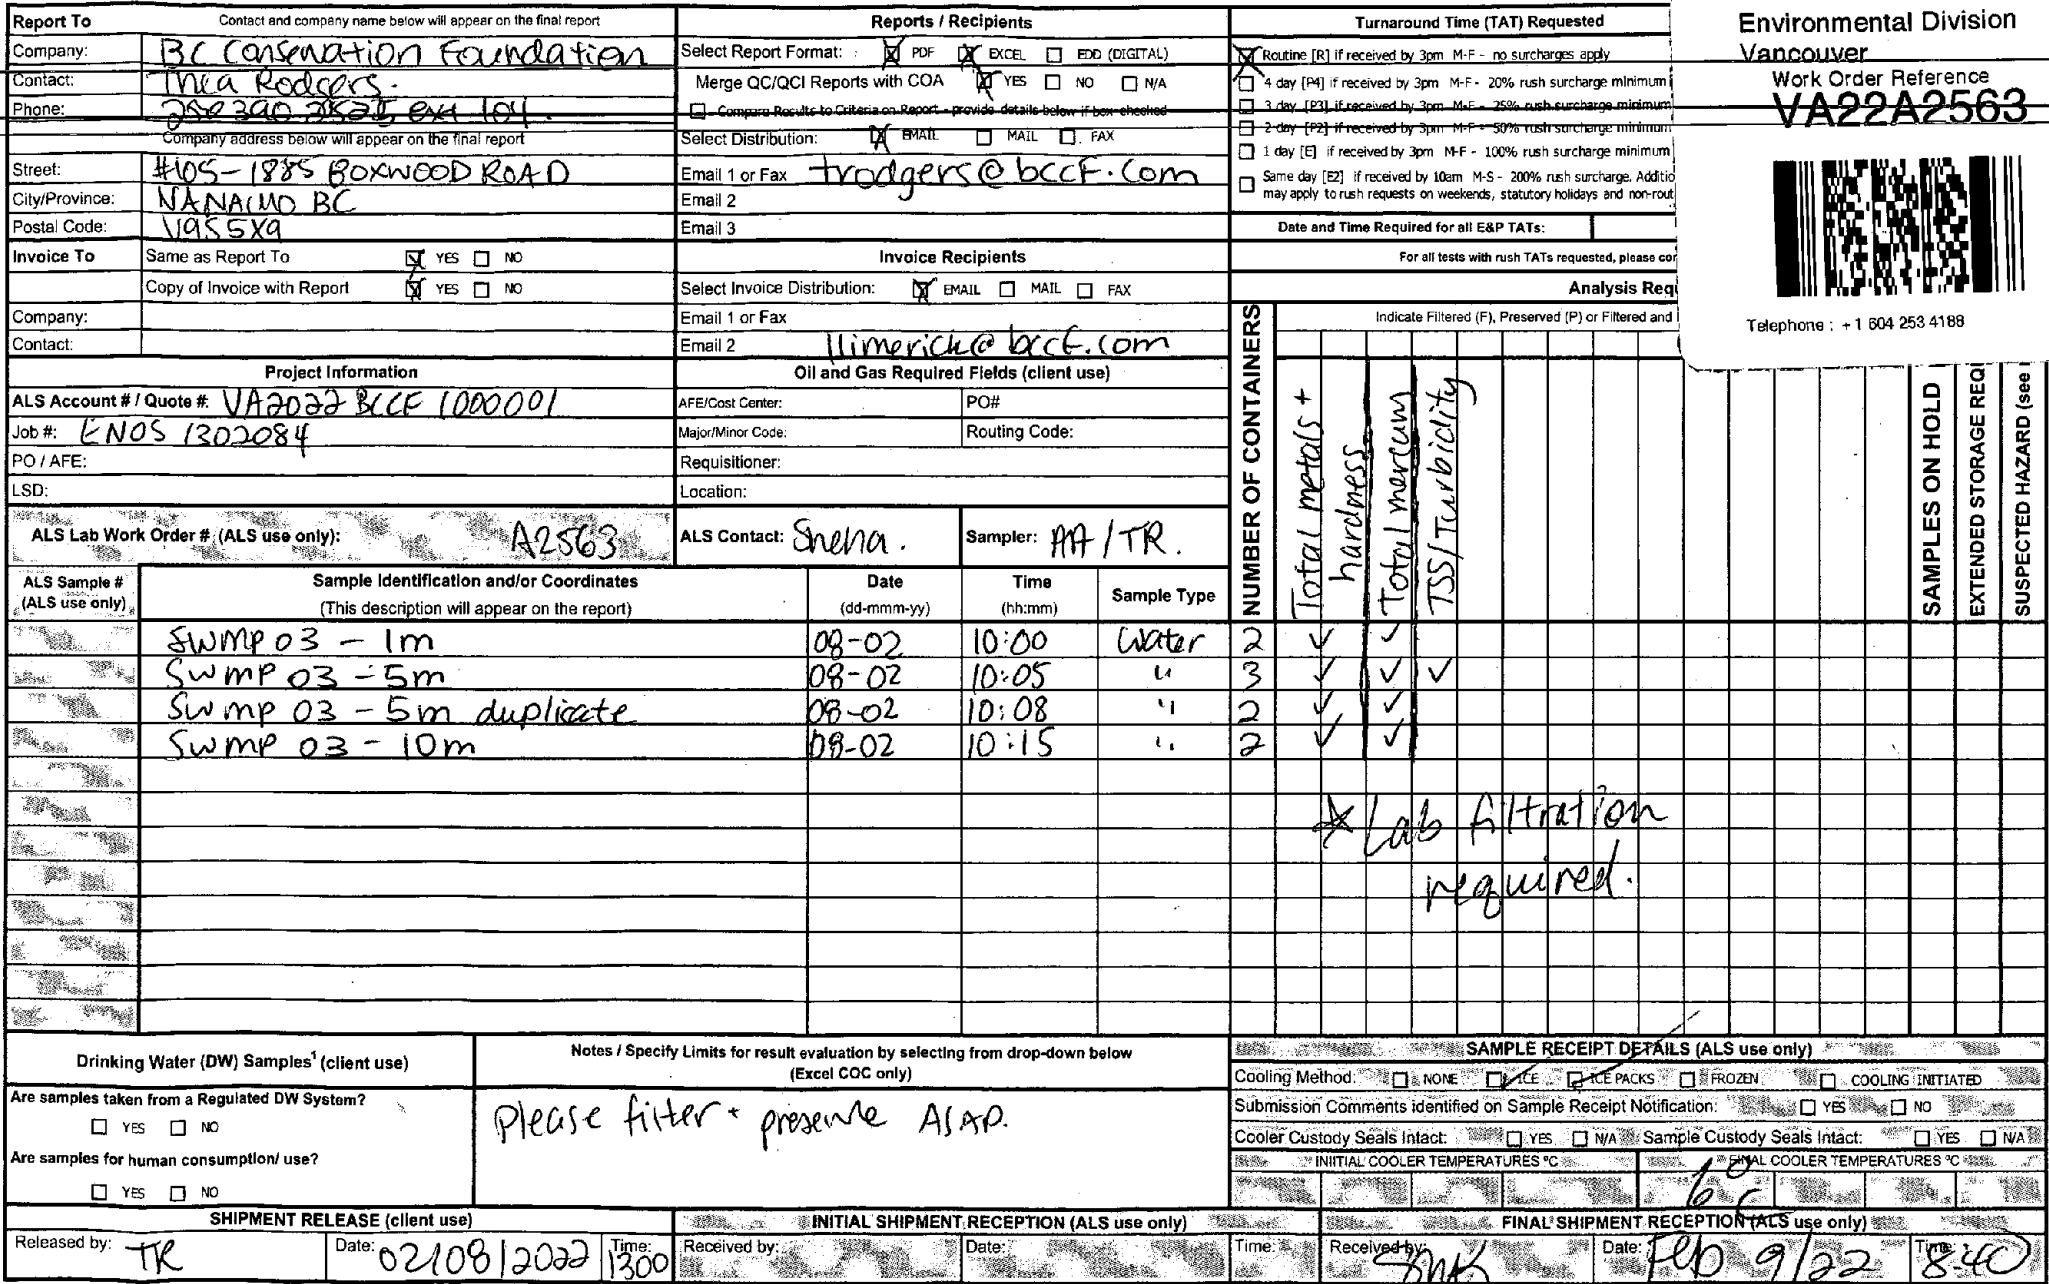 Report To Contact and company name below will appear on the final report
Company: BC Consevation Foundation
Contact: Thea Rodgers.
Phone: ext 104.
Company address below will appear on the final report
Street: #105-1885 BOXWOOD ROAD
City/Province: NANAIMO BC
Postal Code: V9S5X9
Invoice To Same as Report To YES NO
Copy of Invoice with Report YES NO
Company:
Contact:
Project Information
ALS Account # / Quote #: VA2022BCCF1000001
Job #: ENOS 1302084
PO / AFE:
LSD:
ALS Lab Work Order # (ALS use only): A2563
Reports / Recipients
Select Report Format: PDF EXCEL EDD (DIGITAL)
Merge QC/QCI Reports with COA YES NO N/A
Compare Results to Criteria on Report - provide details below if box checked
Select Distribution: EMAIL MAIL FAX
Email 1 or Fax trodgers@bccf.com
Email 2
Email 3
Invoice Recipients
Select Invoice Distribution: EMAIL MAIL FAX
Email 1 or Fax
Email 2 llimerick@bccf.com
Oil and Gas Required Fields (client use)
AFE/Cost Center: PO#
Major/Minor Code: Routing Code:
Requisitioner:
Location:
ALS Contact: Sneha. Sampler: AA/TR.
Turnaround Time (TAT) Requested
Routine [R] if received by 3pm M-F - no surcharges apply
4 day [P4] if received by 3pm M-F - 20% rush surcharge minimum
3 day [P3] if received by 3pm M-F - 25% rush surcharge minimum
2 day [P2] if received by 3pm M-F - 50% rush surcharge minimum
1 day [E] if received by 3pm M-F - 100% rush surcharge minimum
Same day [E2] if received by 10am M-S - 200% rush surcharge. Additio
may apply to rush requests on weekends, statutory holidays and non-rout
Date and Time Required for all E&P TATs:
For all tests with rush TATs requested, please cor
Analysis Requ
Indicate Filtered (F), Preserved (P) or Filtered and
Environmental Division
Vancouver
Work Order Reference
VA22A2563
Telephone : + 1 604 253 4188
NUMBER OF CONTAINERS
Total metals +
hardness
Total mercury
TSS/Turbidity
SAMPLES ON HOLD
EXTENDED STORAGE REQ
SUSPECTED HAZARD (see
ALS Sample # (ALS use only) Sample Identification and/or Coordinates (This description will appear on the report) Date (dd-mmm-yy) Time (hh:mm) Sample Type
SWMP 03 - 1m 08-02 10:00 Water 2 ✓ ✓
SWMP 03 - 5m 08-02 10:05 " 3 ✓ ✓ ✓
SWMP 03 - 5m duplicate 08-02 10:08 " 2 ✓ ✓
SWMP 03 - 10m 08-02 10:15 " 2 ✓ ✓
* Lab filtration
required.
Drinking Water (DW) Samples¹ (client use)
Are samples taken from a Regulated DW System?
YES NO
Are samples for human consumption/ use?
YES NO
Notes / Specify Limits for result evaluation by selecting from drop-down below
(Excel COC only)
Please filter + preserve ASAP.
SAMPLE RECEIPT DETAILS (ALS use only)
Cooling Method: NONE ICE ICE PACKS FROZEN COOLING INITIATED
Submission Comments identified on Sample Receipt Notification: YES NO
Cooler Custody Seals Intact: YES N/A Sample Custody Seals Intact: YES N/A
INITIAL COOLER TEMPERATURES °C FINAL COOLER TEMPERATURES °C
6°C
SHIPMENT RELEASE (client use)
Released by: TR Date: 02/08/2022 Time: 1300
INITIAL SHIPMENT RECEPTION (ALS use only)
Received by: Date: Time:
FINAL SHIPMENT RECEPTION (ALS use only)
Received by: Date: Feb 9/22 Time: 8:40